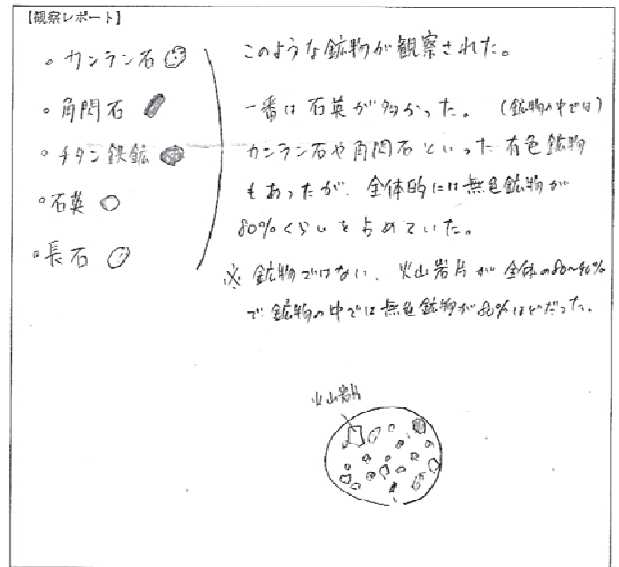 【観察レポート】
・カンラン石
・角閃石
・チタン鉄鉱
・石英
・長石
このような鉱物が観察された。
一番は石英が多かった。（鉱物の中では）
カンラン石や角閃石といった有色鉱物
もあったが、全体的には無色鉱物が
80%くらいを占めていた。
※鉱物ではない、火山岩片が全体の80~90%
で鉱物の中では無色鉱物が80%ほどだった。
火山岩片